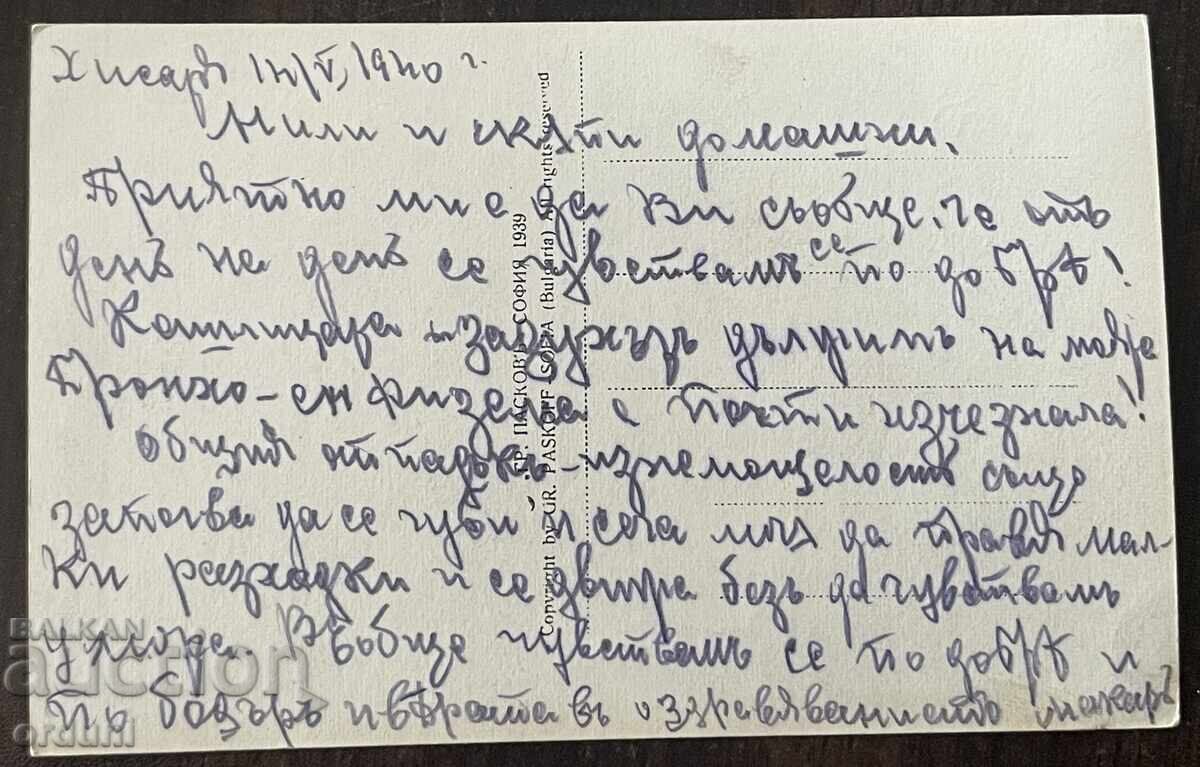 Хисаря 14/V, 1940 г.
Мили и скѫпи домашни,
Приятно ми е да Ви съобще, че отъ
день на день се чувствамъ се по добрѣ!
Кашлицата и задухътъ дължимъ на моята
Бронхо-енфизема е почти изчезнала!!
Общия отпадъкъ-изнемощелость също
започва да се губи и сега мога да правя мал-
ки разходки и се движа безъ да чувствамъ
умора. Въобще чувствамъ се по добрѣ и
по бодъръ и вѣрата въ оздравяванието макаръ
ГР. ПАСКОВЪ - СОФИЯ 1939
Copyright by GR. PASKOFF-SOFIA (Bulgaria) All rights reserved
BALKAN
auction
orduni